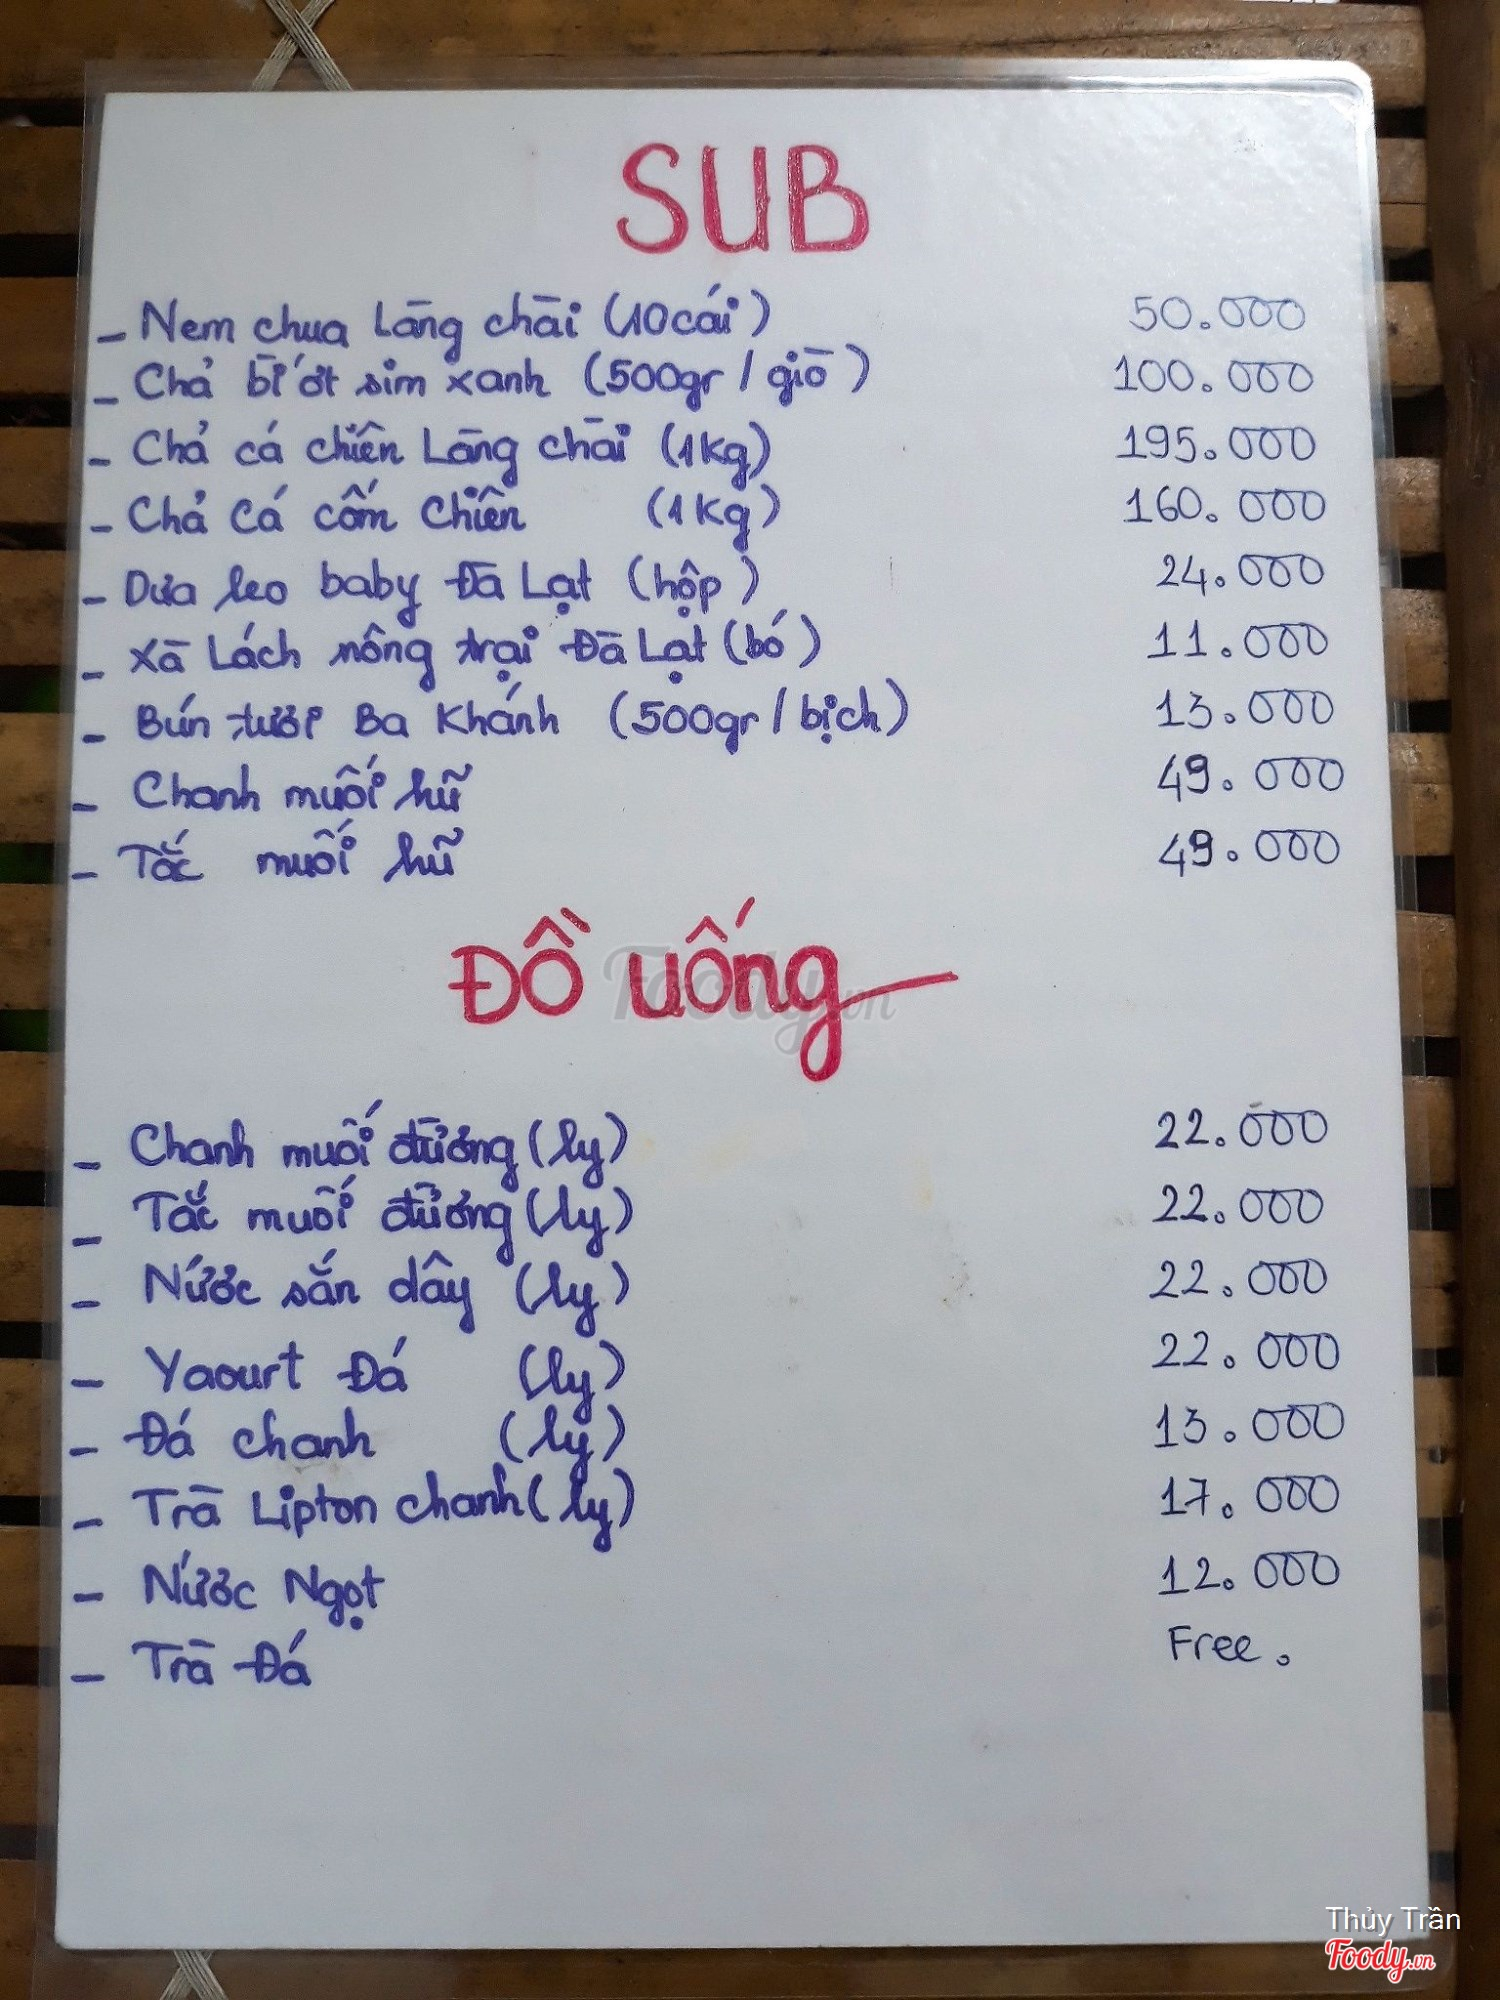 SUB
- Nem chua Làng chài (10 cái) 50.000
- Chả bì ớt sim xanh (500gr / giò) 100.000
- Chả cá chiên Làng chài (1Kg) 195.000
- Chả cá cốm chiên (1Kg) 160.000
- Dưa leo baby Đà Lạt (hộp) 24.000
- Xà Lách nông trại Đà Lạt (bó) 11.000
- Bún tươi Ba Khánh (500gr / bịch) 13.000
- Chanh muối hũ 49.000
- Tắc muối hũ 49.000
Đồ uống
Foody.vn
- Chanh muối đường (ly) 22.000
- Tắc muối đường (ly) 22.000
- Nước sắn dây (ly) 22.000
- Yaourt Đá (ly) 22.000
- Đá chanh (ly) 13.000
- Trà Lipton chanh (ly) 17.000
- Nước Ngọt 12.000
- Trà Đá Free.
Thủy Trần
Foody.vn